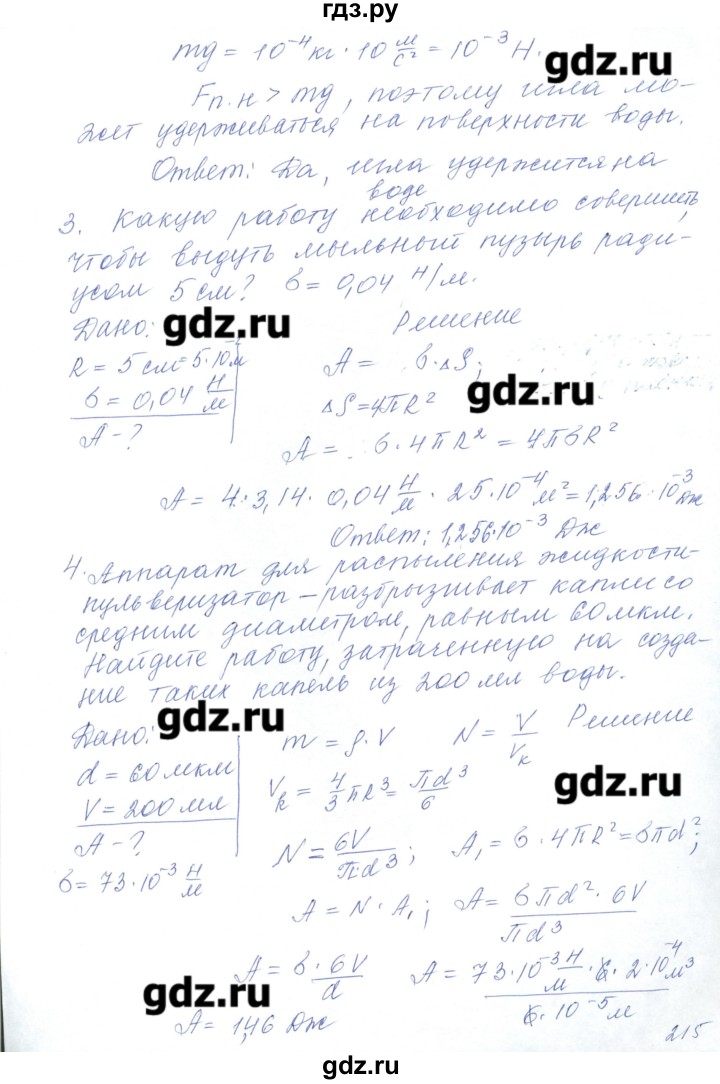 гдз.ру
mg = 10⁻⁴ кг · 10 м/с² = 10⁻³ Н.
gdz.ru
Fп.н > mg, поэтому игла мо-
жет удерживаться на поверхности воды.
Ответ: Да, игла удержится на
воде
3. Какую работу необходимо совершить,
чтобы выдуть мыльный пузырь ради-
усом 5 см? б = 0,04 Н/м.
Дано: gdz.ru Решение
R = 5 см = 5·10 м A = б·ΔS;
б = 0,04 Н/м ΔS = 4πR² gdz.ru
A - ? A = б·4πR² = 4πбR²
A = 4·3,14·0,04 Н/м · 25·10⁻⁴ м² = 1,256·10⁻³ Дж
Ответ: 1,256·10⁻³ Дж
4. Аппарат для распыления жидкости-
пульверизатор – разбрызгивает капли со
средним диаметром, равным 60 мкм.
Найдите работу, затраченную на созда-
ние таких капель из 200 мл воды.
gdz.ru
Дано: m = ρ·V N = V/Vк Решение
d = 60 мкм Vк = 4/3 πR³ = πd³/6 gdz.ru
V = 200 мл
A - ? N = 6V/πd³; A₁ = б·4πR² = бπd²;
б = 73·10⁻³ Н/м
A = N·A₁; A = бπd²·6V/πd³
A = б·6V/d A = 73·10⁻³ Н/м · 6·2·10⁻⁴ м³/6·10⁻⁵ м
gdz.ru
A = 1,46 Дж
215
gdz.ru